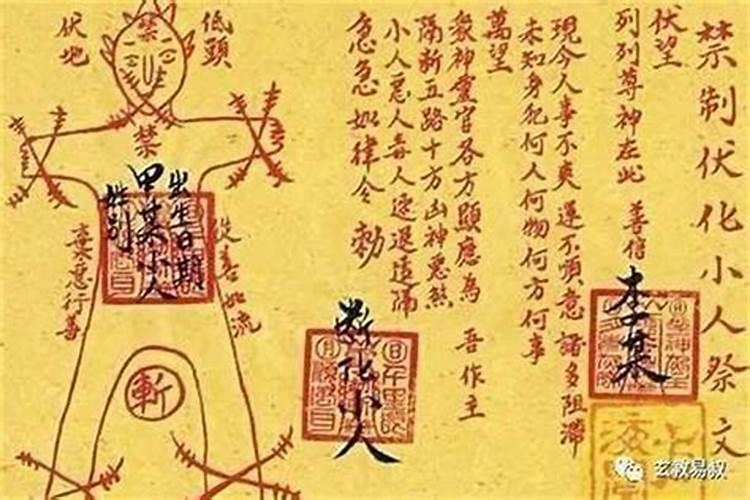 禁制伏化小人祭文
伏望
列列尊神在此 善信
李某
現今人事不爽運不順意諸多阻滯
未知身犯何人何物何方何事
萬望
眾神靈官各方顯應為 吾作主
隔斷五路十方凶神惡煞
小人惡人毒人速退遠隔
急急如律令 勅
斷化小人
低頭
伏地
禁
禁
出生日期
甲某小人
姓列
從善如流
棄惡行善
斬
玄教易叔